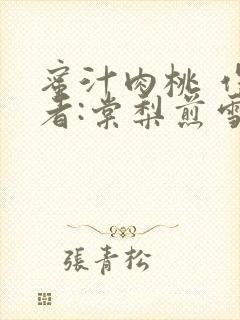 蜜汁肉桃 作
者:棠梨煎雪
張青松